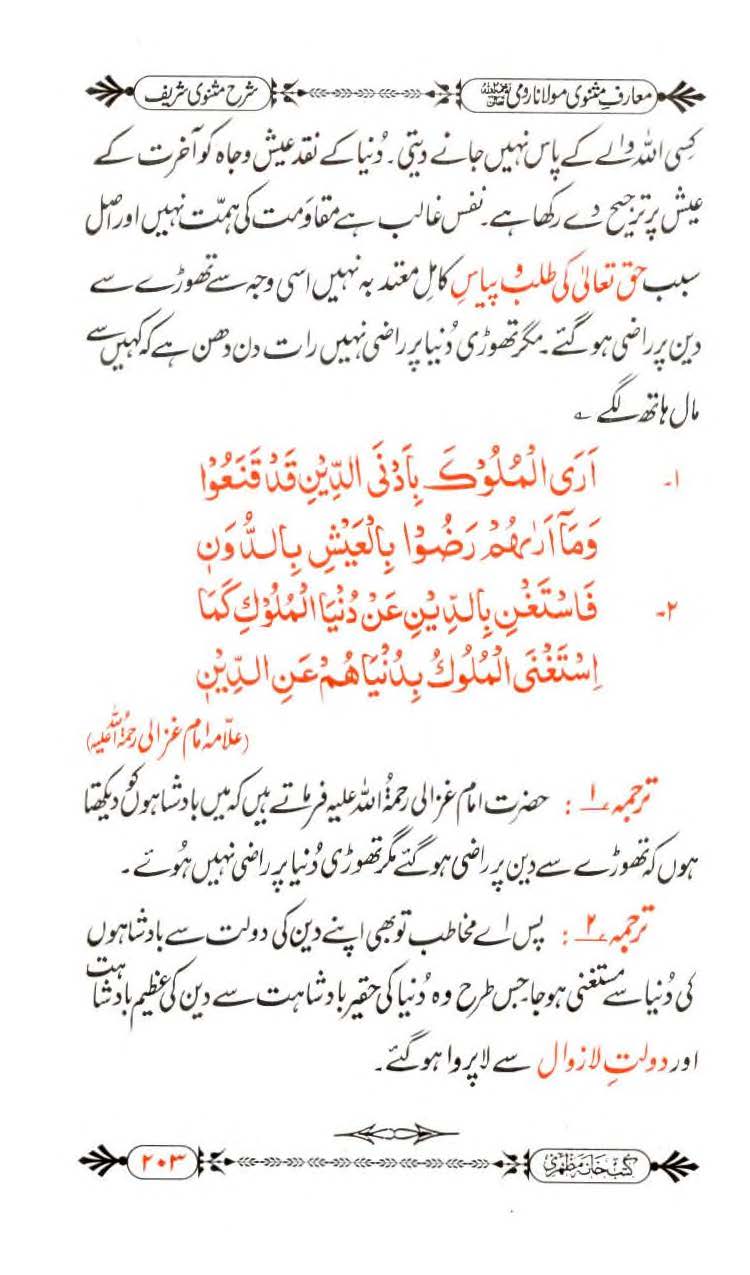 معارفِ مثنوی مولانا رومی رحمۃ اللہ تعالیٰ علیہ
شرح مثنوی شریف
کسی اللہ والے کے پاس نہیں جانے دیتی۔ دُنیا کے نقد عیش و جاہ کو آخرت کے
عیش پر ترجیح دے رکھا ہے۔ نفس غالب ہے مقاومت کی ہمّت نہیں اور اصل
سبب حق تعالیٰ کی طلب و پیاسِ کامل معتد بہ نہیں اسی وجہ سے تھوڑے سے
دین پر راضی ہو گئے۔ مگر تھوڑی دُنیا پر راضی نہیں رات دن دھن ہے کہ کہیں سے
مال ہاتھ لگے ؎
۱۔ اَرَی الْمُلُوْکَ بِاَدْنَی الدِّیْنِ قَدْ قَنَعُوْا
وَمَآ اَرٰىهُمْ رَضُوْا بِالْعَیْشِ بِالدُّوْنٖ
۲۔ فَاسْتَغْنِ بِالدِّیْنِ عَنْ دُنْیَا الْمُلُوْكِ كَمَا
اِسْتَغْنَی الْمُلُوْكُ بِدُنْیَاهُمْ عَنِ الدِّیْنٖ
(علّامہ امام غزالی رحمۃ اللہ علیہ)
ترجمہ ۱ : حضرت امام غزالی رحمۃُ اللہ علیہ فرماتے ہیں کہ میں بادشاہوں کو دیکھتا
ہوں کہ تھوڑے سے دین پر راضی ہو گئے مگر تھوڑی دُنیا پر راضی نہیں ہُوئے۔
ترجمہ ۲ : پس اے مخاطب تو بھی اپنے دین کی دولت سے بادشاہوں
کی دُنیا سے مستغنی ہو جا جس طرح وہ دُنیا کی حقیر بادشاہت سے دین کی عظیم بادشاہت
اور دولتِ لازوال سے لاپروا ہو گئے۔
کتب خانہ مظہری
۲۰۳